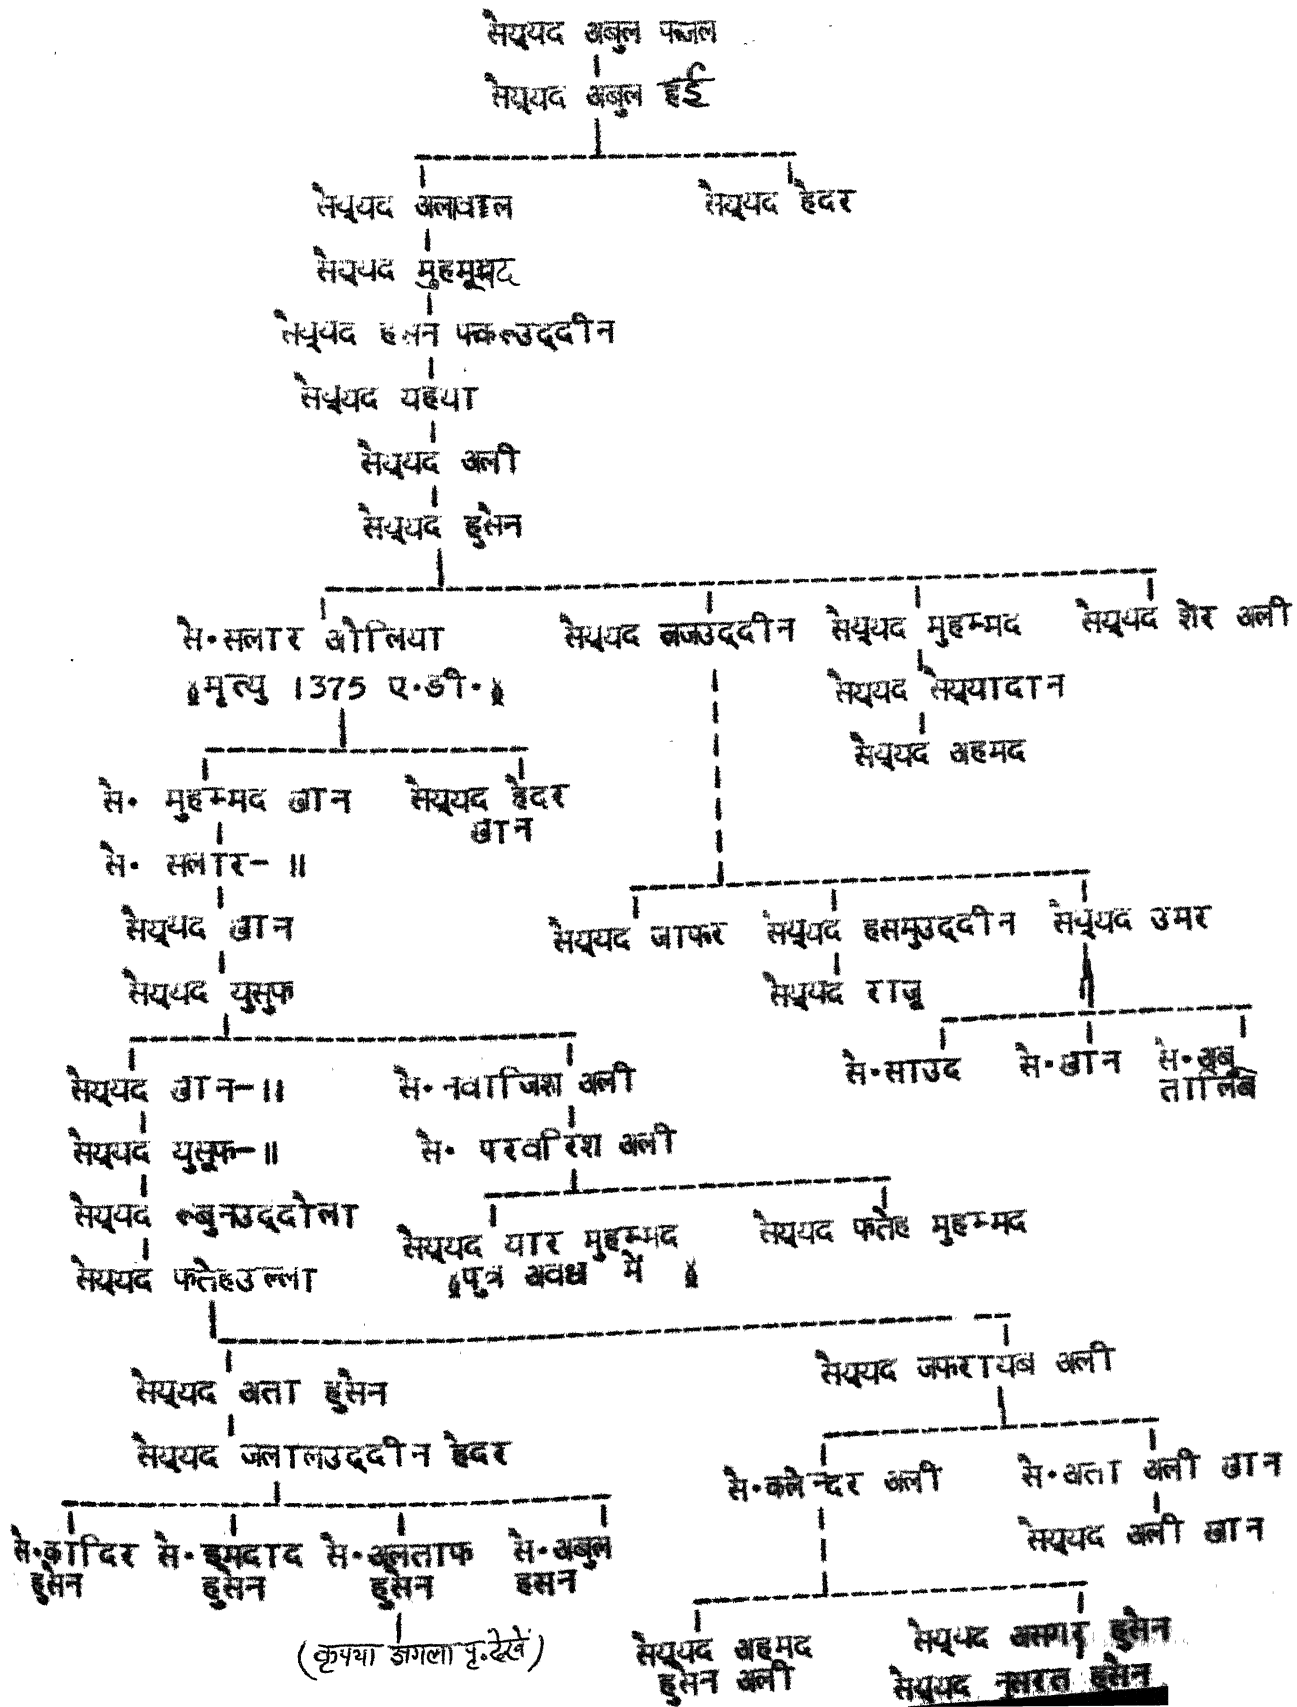 सैय्यद अबुल फजल
सैय्यद अबुल हई
सैय्यद अलवाल
सैय्यद हैदर
सैय्यद मुहम्मद
सैय्यद हसन
सैय्यद यहया
सैय्यद अली
सैय्यद हुसैन
सै॰सलार औलिया
सैय्यद मुहम्मद
सैय्यद शेर अली
मृत्यु 1375 ए॰डी॰
सैय्यद सैय्यादान
सैय्यद अहमद
सै॰ मुहम्मद खान
सैय्यद हैदर
खान
सै॰ सलार-॥
सैय्यद खान
सैय्यद जाफर
सैय्यद हसमुउद्दीन
सैय्यद उमर
सैय्यद युसुफ
सैय्यद राजू
सै॰साउद
सै॰खान
सै॰अबु
तालिब
सैय्यद खान-॥
सै॰नवाजिश अली
सैय्यद युसूफ-॥
सै॰ परवरिश अली
सैय्यद
सैय्यद यार मुहम्मद
सैय्यद फतेह मुहम्मद
सैय्यद फतेहउल्ला
पुत्र अवध में
सैय्यद अता हुसैन
सैय्यद जफरायब अली
सैय्यद जलालउद्दीन हैदर
सै॰कलेन्दर अली
सै॰अता अली खान
सैय्यद अली खान
सै॰कादिर
हुसैन
सै॰इमदाद
हुसैन
सै॰अल्ताफ
हुसैन
सै॰अबुल
हसन
(कृपया अगला पृ.देखें)
सैय्यद अहमद
हुसैन अली
सैय्यद असगर हुसैन
सैय्यद नुसरत हुसैन